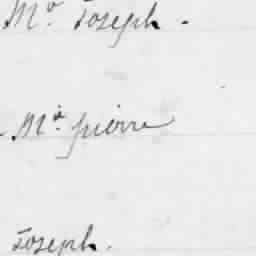 Mr. Joseph.
Mr. pierre
Joseph.